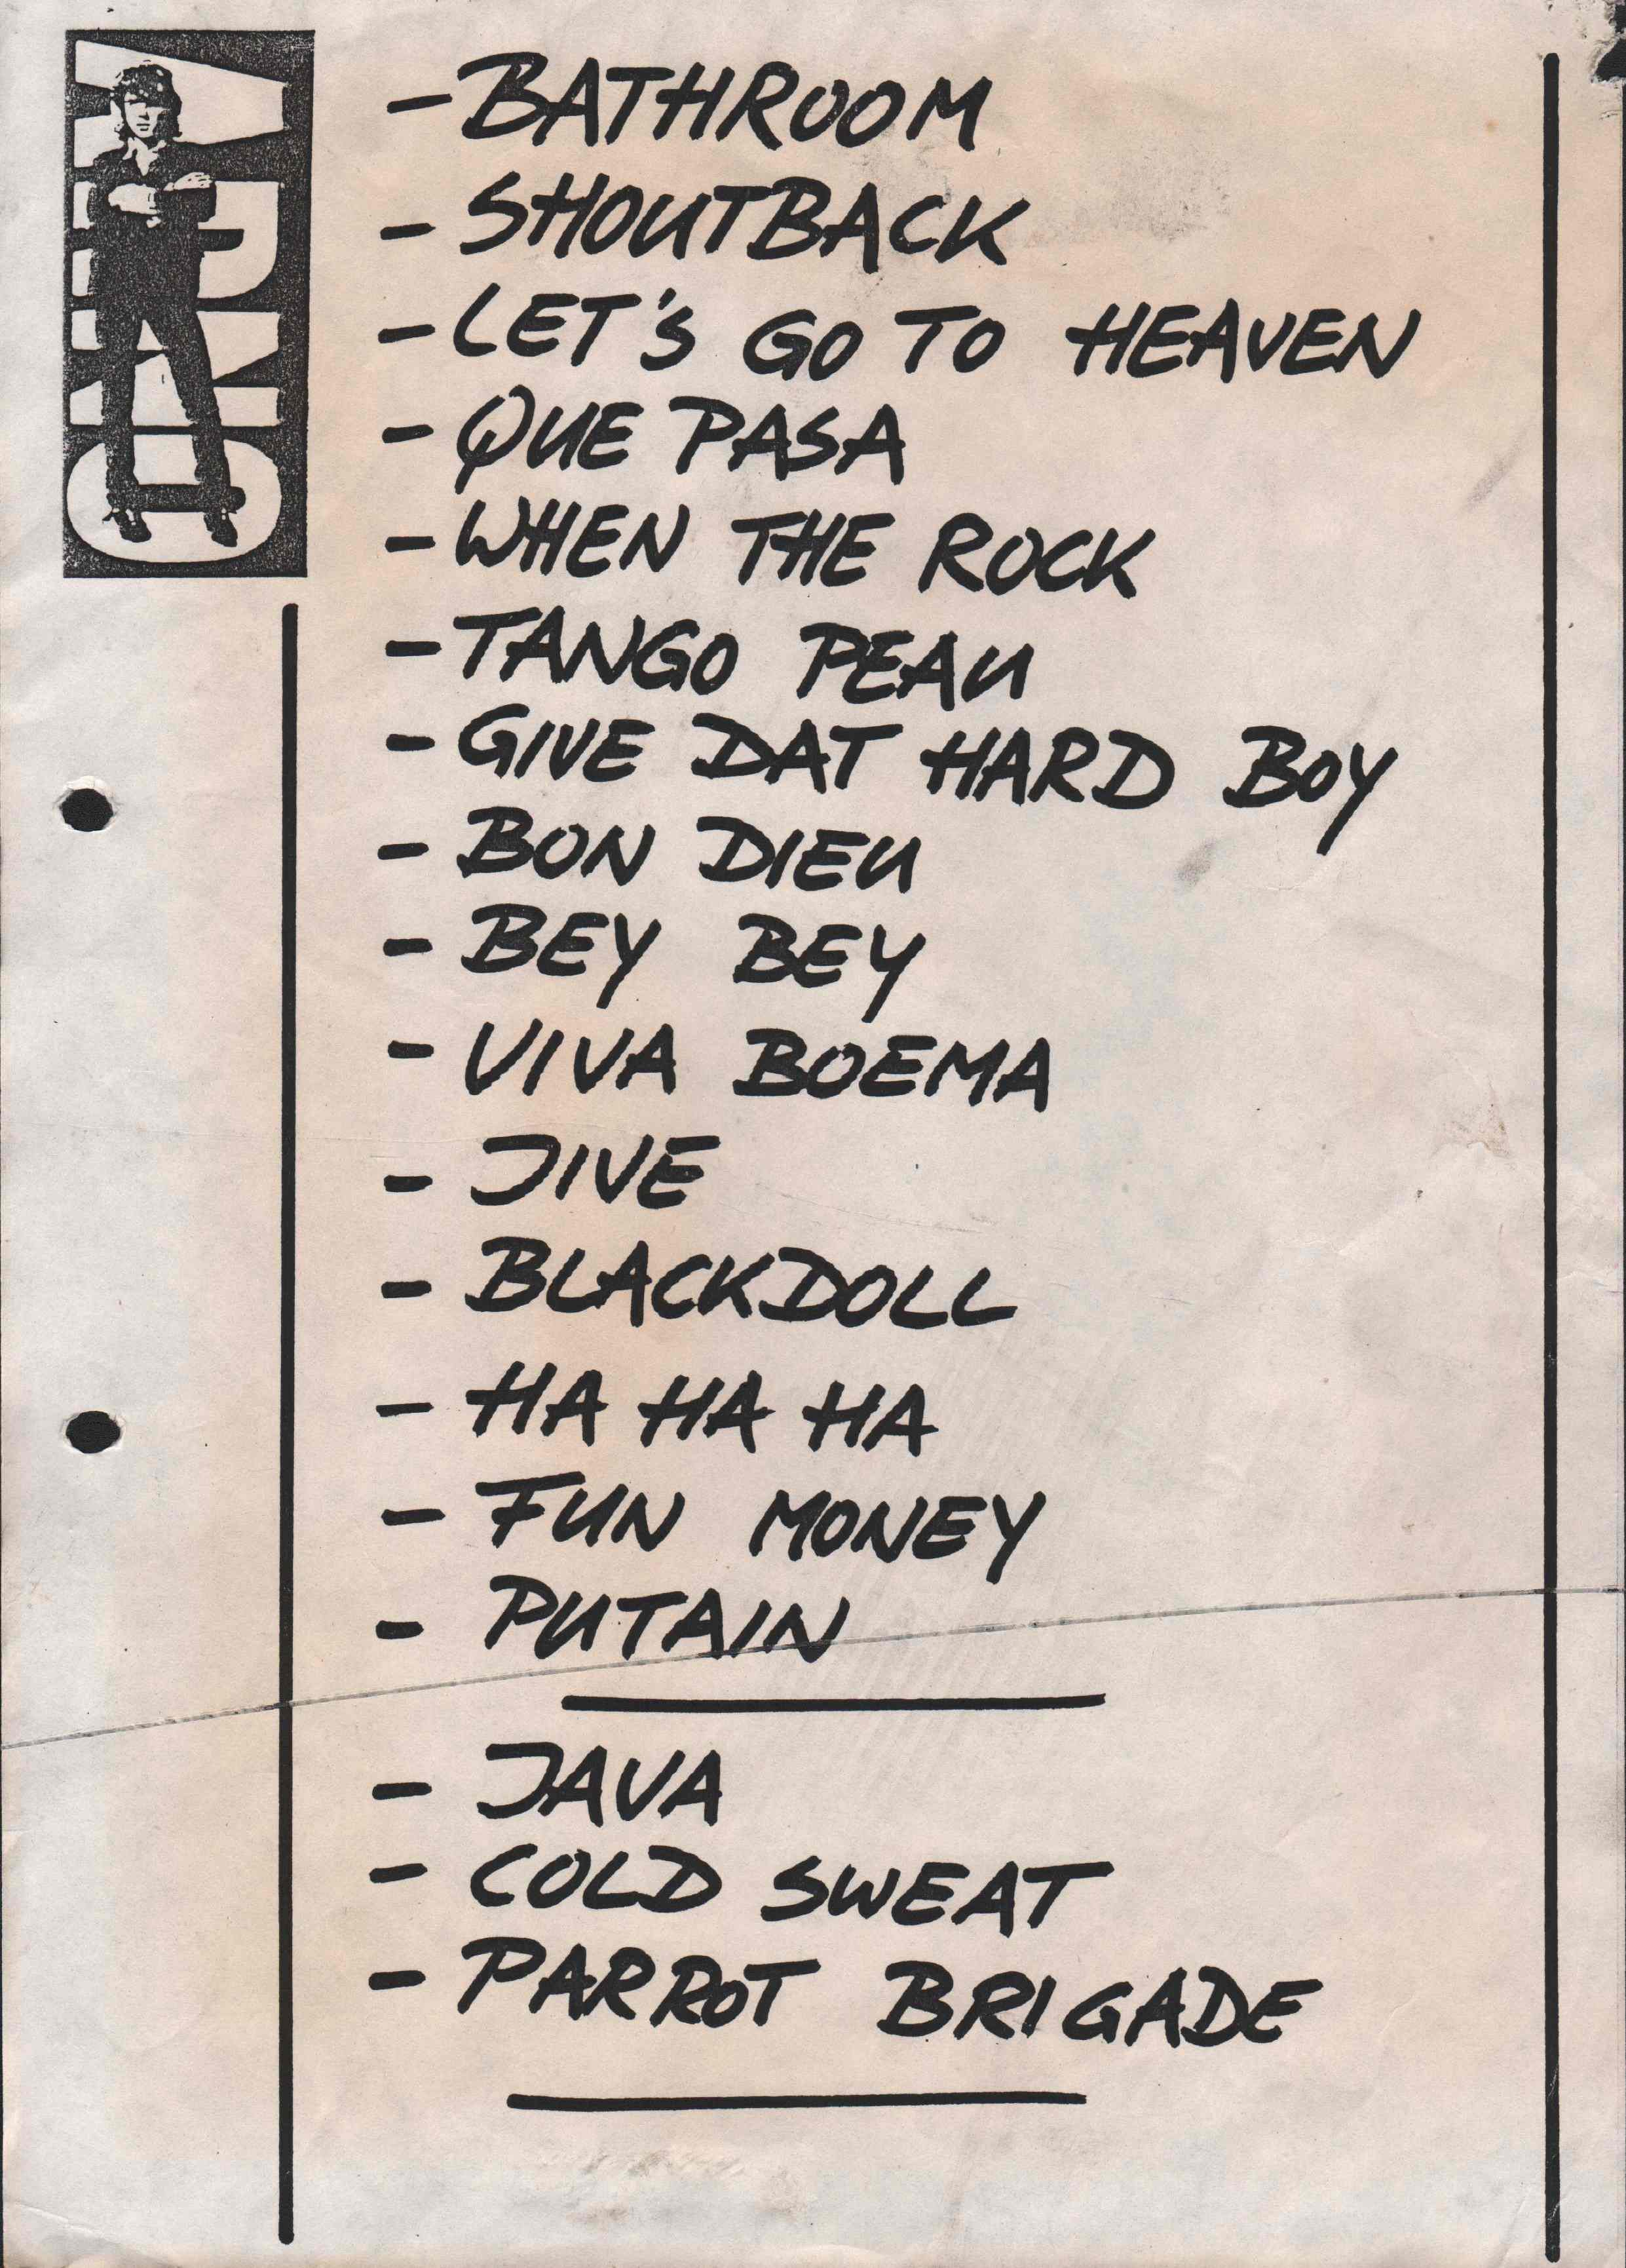 - BATHROOM
- SHOUTBACK
- LET'S GO TO HEAVEN
- QUE PASA
- WHEN THE ROCK
- TANGO PEAU
- GIVE DAT HARD BOY
- BON DIEU
- BEY BEY
- VIVA BOEMA
- JIVE
- BLACKDOLL
- HA HA HA
- FUN MONEY
- PUTAIN
- JAVA
- COLD SWEAT
- PARROT BRIGADE